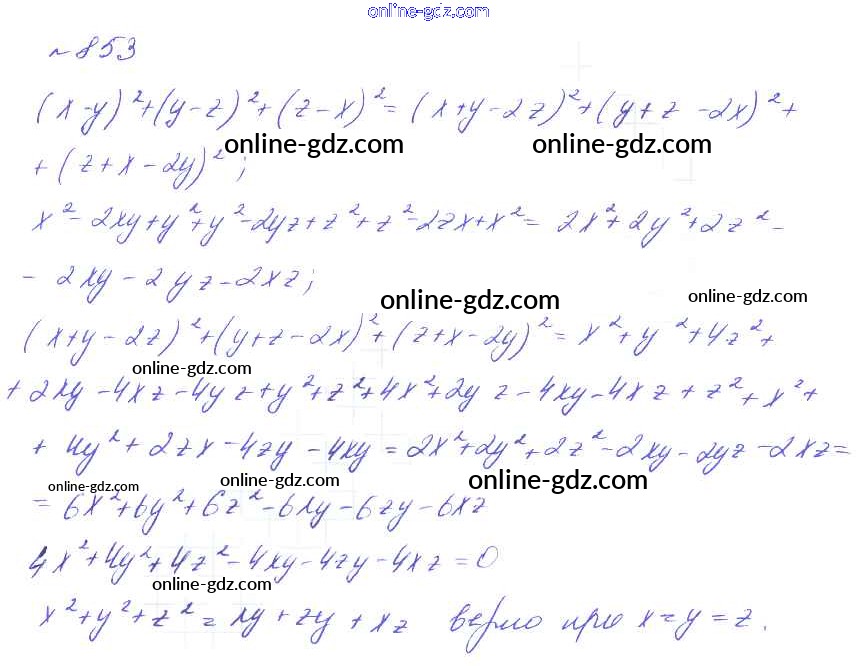 online-gdz.com
№853
(x-y)²+(y-z)²+(z-x)²=(x+y-2z)²+(y+z-2x)²+
online-gdz.com online-gdz.com
+(z+x-2y)²;
x²-2xy+y²+y²-2yz+z²+z²-2zx+x²= 2x²+2y²+2z²-
- 2xy-2yz-2xz;
online-gdz.com online-gdz.com
(x+y-2z)²+(y+z-2x)²+(z+x-2y)²= x²+y²+4z²+
online-gdz.com
+2xy-4xz-4yz+y²+z²+4x²+2yz-4xy-4xz+z²+x²+
+4y²+2zx-4zy-4xy=2x²+2y²+2z²-2xy-2yz-2xz=
online-gdz.com online-gdz.com online-gdz.com
=6x²+6y²+6z²-6xy-6zy-6xz
4x²+4y²+4z²-4xy-4zy-4xz=0
online-gdz.com
x²+y²+z²=xy+zy+xz верно при x=y=z.